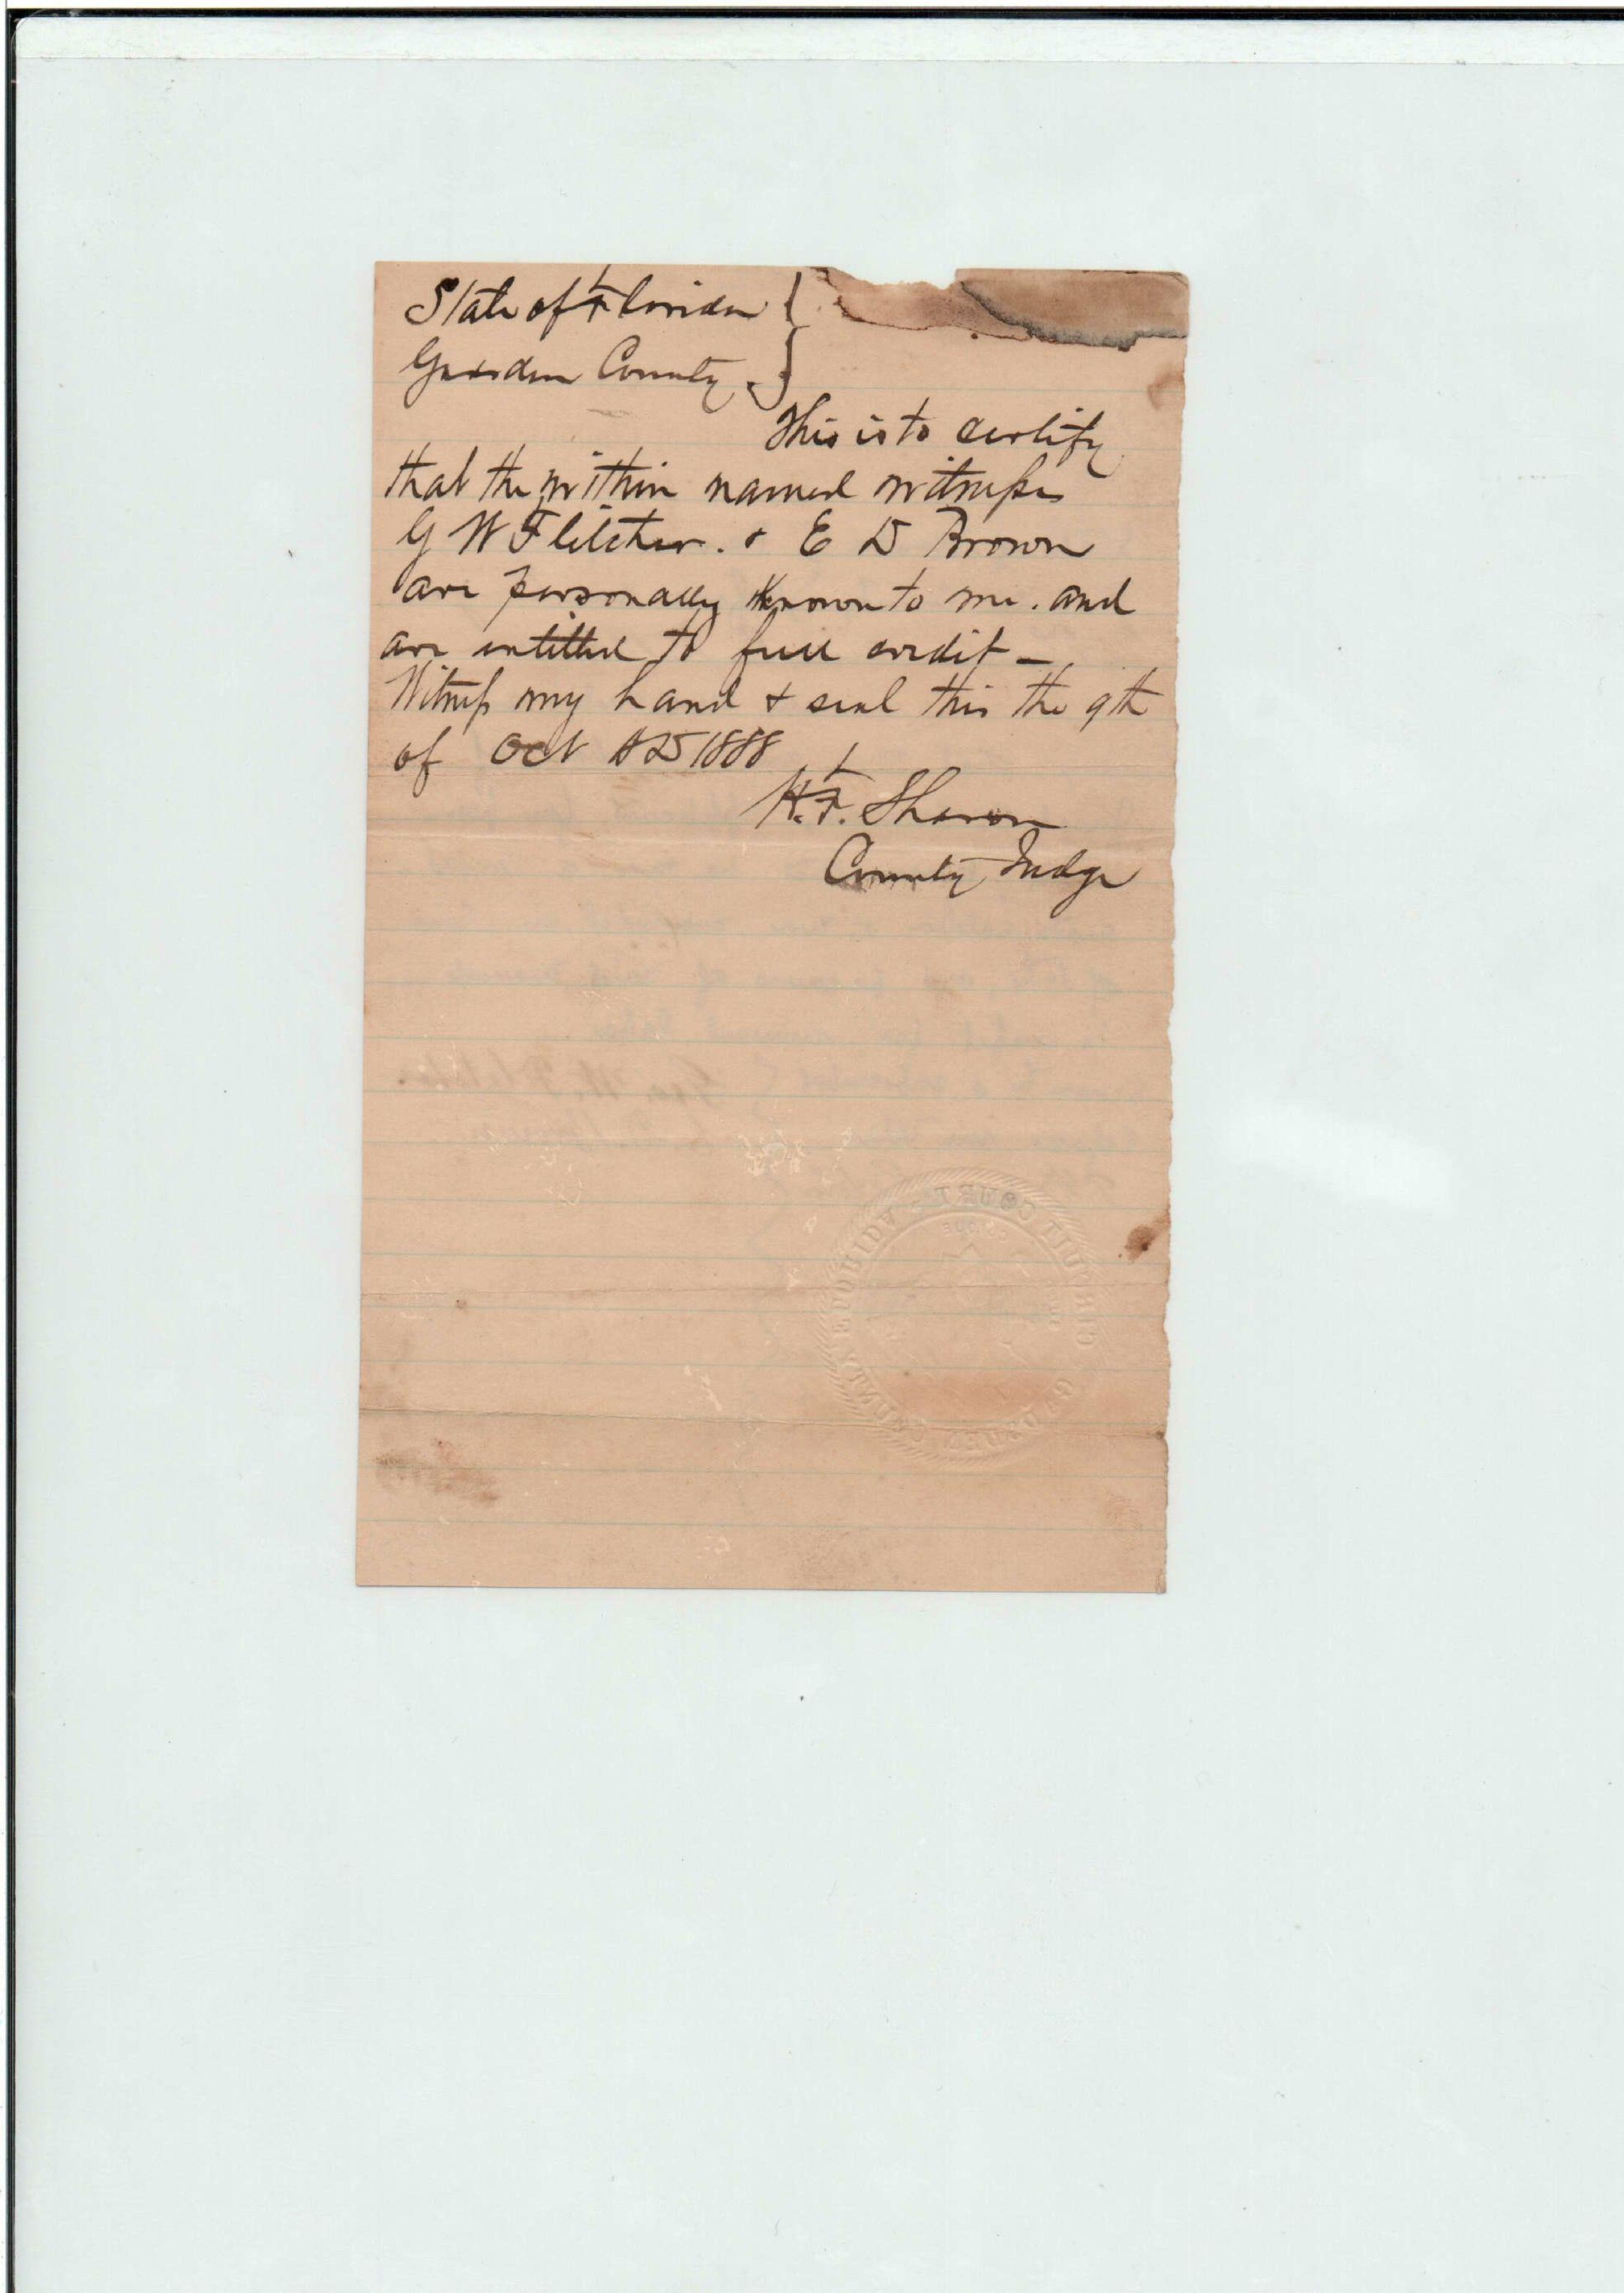 State of Florida }
Gadsden County }
This is to certify
that the within named witnesses
G W Fletcher. & E D Brown
are personally known to me. and
are entitled to full credit –
Witness my hand & seal this the 9th
of Oct AD 1888
H. F. Sharon
County Judge
CIRCUIT COURT
GADSDEN COUNTY FLORIDA